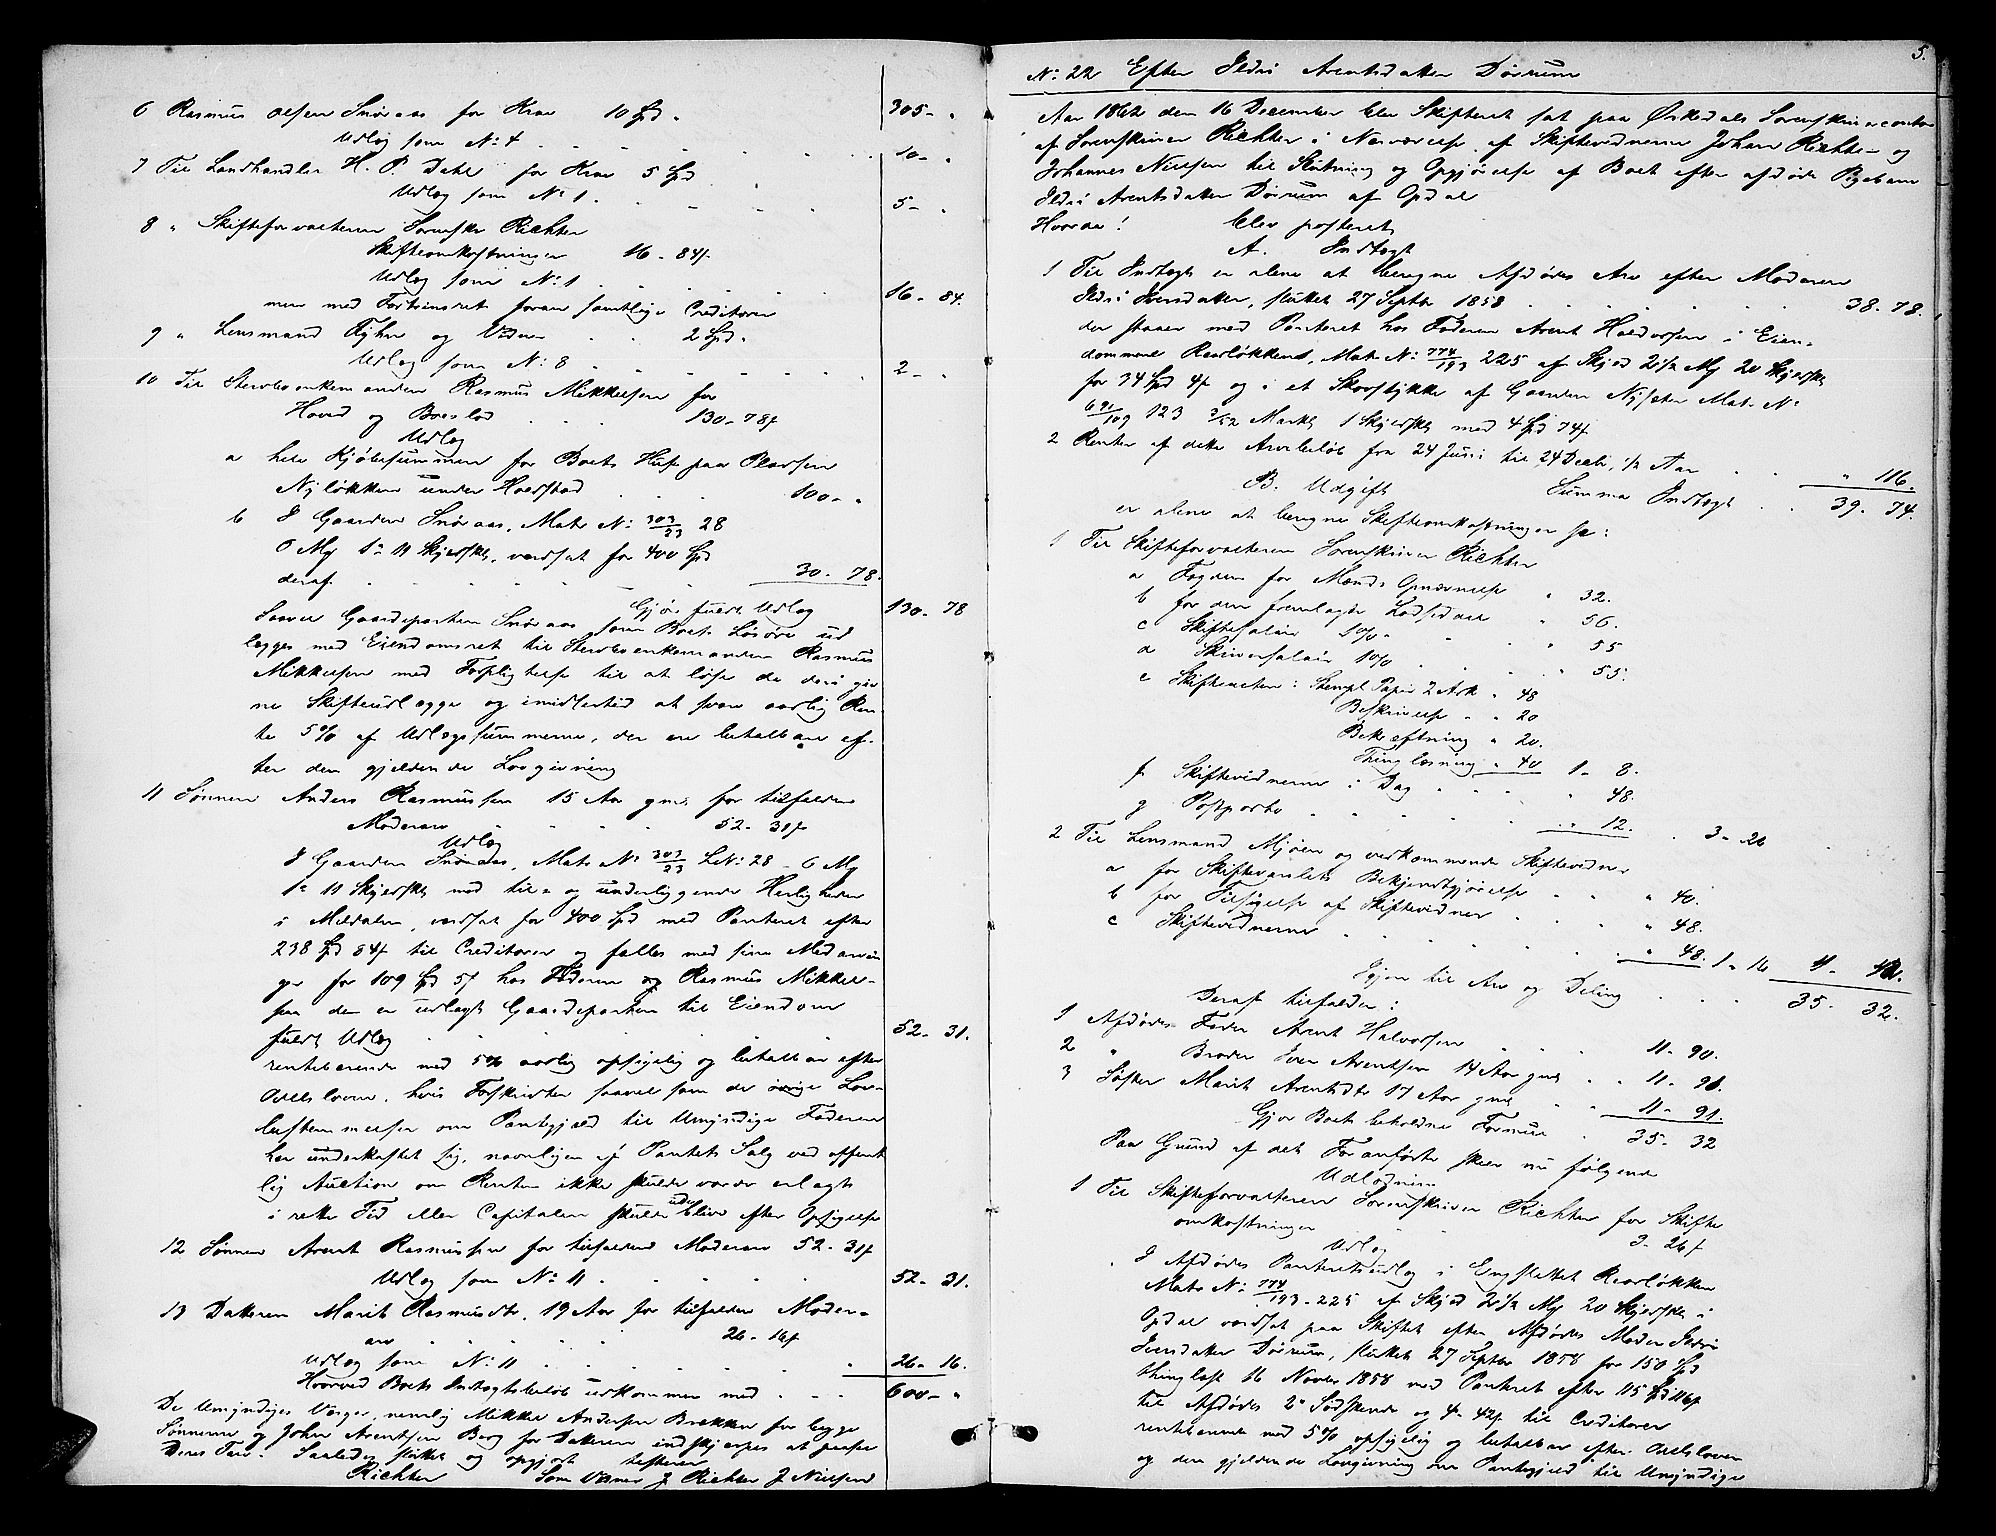 305 - "
6 Rasmus Olsen Snøraas for Krav 10 Spd "
Udlæg som No 4 . . . . . . 10 - "
7 Til Landhandler H. P. Dahl for Krav 5 Spd
Udlæg som No 1 . . . . . 5 - "
8 " Skifteforvalteren Sorenskr Richter
Skifteomkostninger 16 - 84 s
Udlæg som No 1 . . . . . 16 - 84.
men med Fortrinsret foran samtlige Creditorer
9 " Lensmand og Vidner . . 2 Spd "
Udlæg som No 8 . . . . . 2 - "
10 Til Stervboenkemanden Rasmus Mikkelsen for
Hoved og Boeslod . . . 130 - 78 s
Udlæg
a hele Kjøbesummen for Boets Huse paa Pladsen
Nyløkken under Hoelstad . . . 100 - "
b I Gaarden Snøraas, Matr No 303/23 28
0 My 1 11 Skjærsk, værdsat for 400 Spd
deraf . . . . . . 30 - 78.
Gjør fuldt Udlæg 130 - 78
Saavel Gaardeparten Snøraas som Boets Løsøre ud
lægges med Eiendomsret til Stervboenkemanden Rasmus
Mikkelsen med Forpligtelse til at løse de deri giv
ne Skifteudlægge og imidlertid at svare aarlig Ren
te 5 % af Udlægssummerne, der ere betalbare ef-
ter den gjældende Lovgivning
11 Sønnen Anders Rasmussen 15 Aar gml for tilfalden
Mødrearv . . . . . 52 - 31 s
Udlæg
I Gaarden Snøraas, Matr No 303/23 LNo 28 - 0 My
1 11 Skjærsk med til- og underliggende Herligheder
i Meldalen, værdsat for 400 Spd med Panteret efter
238 Spd 84 s til Creditorer og fælles med sine Medarvin
ger for 109 Spd 5 s hos Faderen og Rasmus Mikkel-
sen der er udlagt Gaardeparten til Eiendom
fuldt Udlæg . . . . . 52 - 31.
rentebærende med 5 % aarlig opsigelig og betalbar efter
Odelsloven, hvis Forskrifter saavel som de øvrige Lov-
bestemmelser om Pantegjæld til Umyndige Faderen
har underkastet sig, navnligen if Pantets Salg ved offent
lig Auction om Renten ikke skulde vorde erlagt
i rette Tid eller Capitalen skulde udebleve efter Opsigelse
12 Sønnen Arent Rasmussen for tilfalden Mødrearv 52 - 31 s
Udlæg som No 11 . . . . . 52 - 31.
13 Datteren Marit Rasmusdtr, 19 Aar for tilfalden Mødre-
arv . . . . . . 26 - 16 s
Udlæg som No 11 . . . . " 26 - 16.
Hvorved Boets Indtægtsbeløb udkommer med . . . 600 - "
De Umyndiges Værger, nemlig Mikkel Andersen Brekken for begge
Sønnerne og John Arentsen Berg for Datteren indskjærpes at passe
Deres Tarv. Saaledes sluttet og opgjort testerer
Richter Som Vidner J Richter J Nielsen
5.
No 22 Efter Ildri Arentsdatter Dørrum
Aar 1862 den 16 December blev Skifteret sat paa Ørkedals Sorenskrivercontor
af Sorenskriver Richter i Nærværelse af Skiftevidnerne Johan Richter og
Johannes Nielsen til Slutning og Opgjørelse af Boet efter afdøde Pigebarn
Ildri Arentsdatter Dørrum af Opdal
Hvorda! blev posteret
A. Indtægt
1 Til Indtægt er alene at beregne Afdødes Arv efter Moderen
Ildri Iversdatter, sluttet 27 Septbr 1858 . . . . . 38 - 78.
der staaer med Panteret hos Faderen Arent Haldorsen i Eien-
dommene Rearløkken, Matr No 774/193 225 af Skyld 2 1/2 My 20 Skjærsk
for 34 Spd 4 s og i et Skovstykke af Gaarden Nysæter Matr No
691/109 123 3/52 Marks 1 Skjærsk med 4 Spd 74 s
2 Renter af dette Arvebeløb fra 24 Juni til 24 Decbr, 1/2 Aar . . " 116.
Summa Indtægt . . 39. 74.
B. Udgift
er alene at beregne Skifteomkostninger sc:
1 Til Skifteforvalteren Sorenskriver Richter
a Fogden for Mænds Opnævnelse " 32.
b for den fremlagte Lodseddel " 56.
c Skiftesalair 1 % . . . " 55
d Skriversalair 1 % . . . . 55.
e Skifteacten: Stempl Papir 2 Ark " 48
Beskrivelse " " 20
Bekræftning " 20.
Thinglæsning " 40 1 - 8.
f Skiftevidnerne 1 Dag . . . " 48.
g Postporto . . . . . . " 12. . 3 - 26
2 Til Lensmand Mjøen og vedkommende Skiftevidner
a for Skiftevarslets Bekjendtgjørelse . . " 40.
b for Tilsigelse af Skiftevidner . . . " 48.
c Skiftevidnerne . . . . . " 48. 1 - 16 4 - 42.
Igjen til Arv og Deling . . . 35. 32.
Deraf tilfalder:
1 Afdødes Fader Arent Halvorsen . . . 11 - 90.
2 " Broder Iver Arentsen 14 Aar gml . . 11 - 91.
3 Søster Marit Arentsdtr 17 Aar gml . " 11 - 91.
Gjør Boets beholdne Formue . 35 - 32
Paa Grund af det Foranførte skeer nu følgende
Udlodning
1 Til Skifteforvalteren Sorenskriver Richter for Skifte
omkostninger . . 3 - 26 s
Udlæg
I Afdødes Panteretsudlæg i Engslættet Rearløkken
Matr No 774/193 - 225 af Skyld 2 1/2 My 20 Skjærsk i
Opdal værdsat paa Skiftet efter Afdødes Moder Ildri
Iversdatter Dørrum, sluttet 27 Septbr 1858 for 150 Spd
thinglæst 16 Novbr 1858 med Panteret efter 115 Spd 116 s
til Afdødes 2 Sødskende og 4 - 42 s til Creditorer
rentebærende med 5 % opsigelig og betalbar efter Odelsloven
og den gjældende Lovgivning om Pantegjæld til Umyndige